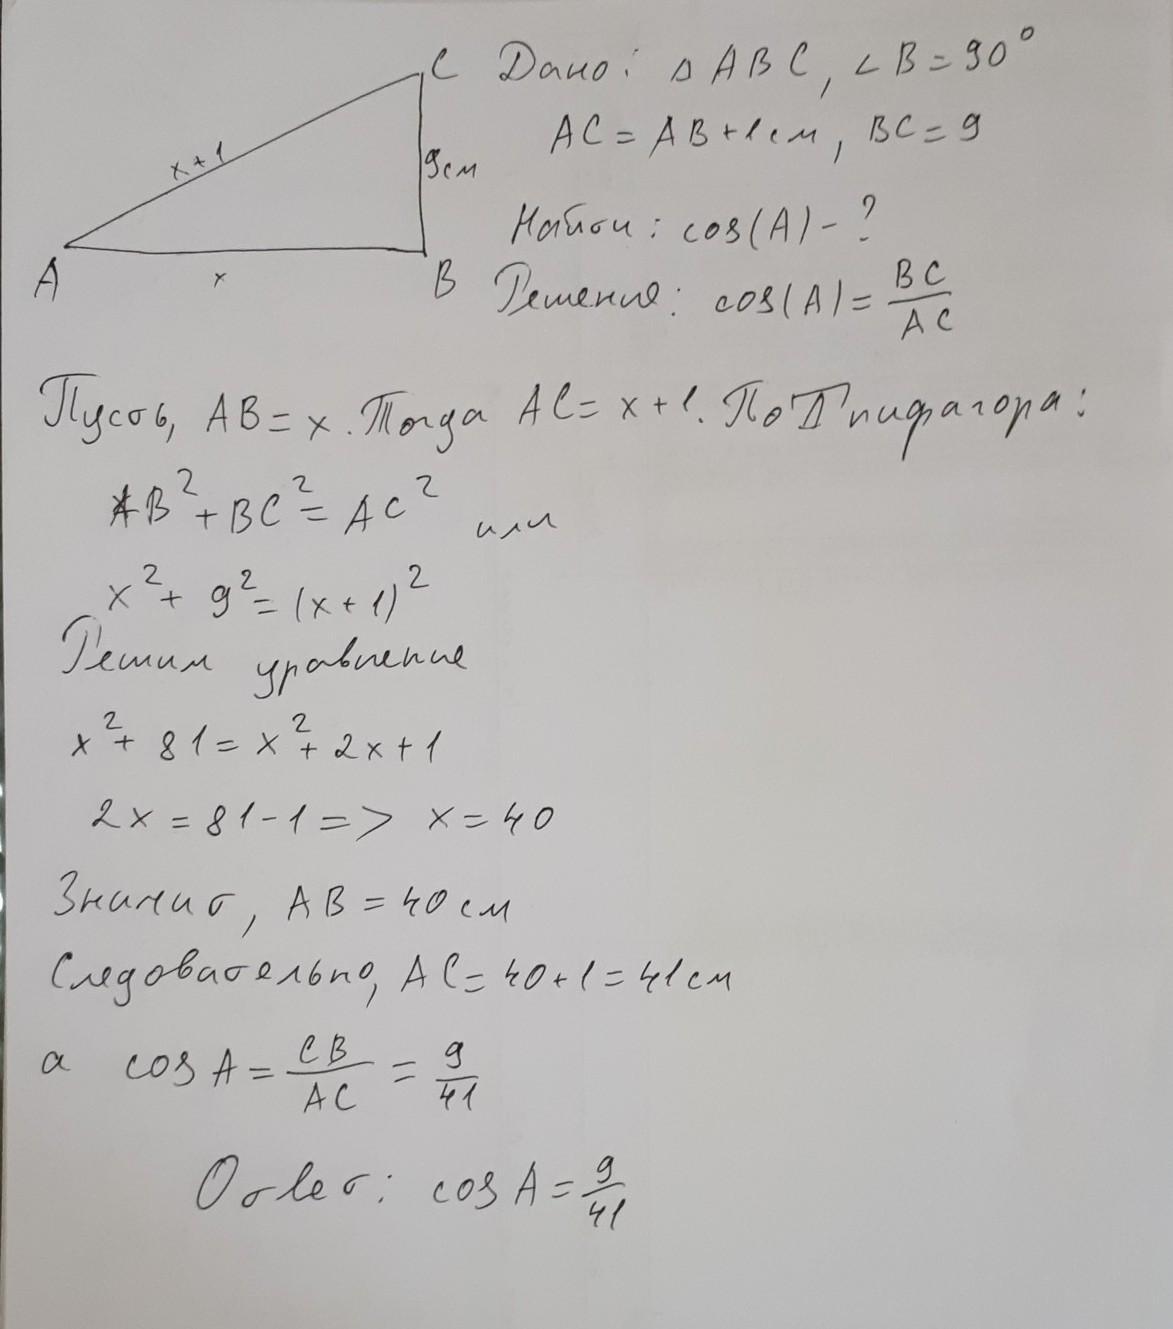 C Дано: △ABC, ∠B=90°
AC=AB+1см, BC=9
x+1
9см
Найти: cos(A)-?
A
x
B
Решение: cos(A)=BC/AC
Пусть, AB=x. Тогда AC=x+1. По Т пифагора:
AB²+BC²=AC² или
x²+9²=(x+1)²
Решим уравнение
x²+81=x²+2x+1
2x=81-1=> x=40
Значит, AB=40см
Следовательно, AC=40+1=41см
а cosA=CB/AC=9/41
Ответ: cosA=9/41